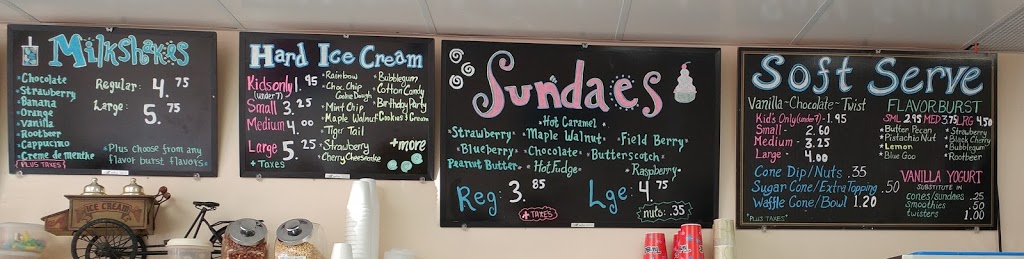 Milkshakes
Chocolate
Strawberry
Banana
Orange
Vanilla
Rootbeer
Cappuccino
Creme de menthe
{PLUS TAXES}
Regular: 4.75
Large: 5.75
*Plus choose from any
flavor burst flavors*
Hard Ice Cream
Kids only 1.95
(under 7)
Small 3.25
Medium 4.00
Large 5.25
*TAXES
*Rainbow
*Choc. Chip
Cookie Dough
*Mint Chip
*Maple Walnut
*Tiger Tail
*Strawberry
*Cherry Cheesecake
*Bubblegum
*Cotton Candy
*Birthday Party
*Cookies & Cream
+more
Sundaes
*Hot Caramel*
*Strawberry* Maple Walnut* Field Berry*
*Blueberry* *Chocolate* *Butterscotch*
Peanut Butter* *Hot Fudge* *Raspberry*
Reg: 3.85
+ TAXES
Lge: 4.75
nuts: .35
Soft Serve
Vanilla~Chocolate~Twist
Kid's Only (under 7) - 1.95
Small - 2.60
Medium - 3.25
Large - 4.00
FLAVORBURST
SML 2.95 MED 3.75 LRG 4.50
*Butter Pecan
*Pistachio Nut
*Lemon
*Blue Goo
*Strawberry
*Black Cherry
*Bubblegum
*Rootbeer
Cone Dip/Nuts .35
Sugar Cone/Extra Topping .50
Waffle Cone/Bowl 1.20
*PLUS TAXES*
VANILLA YOGURT
SUBSTITUTE IN
cones/sundaes .25
smoothies .50
twisters 1.00
ICE CREAM